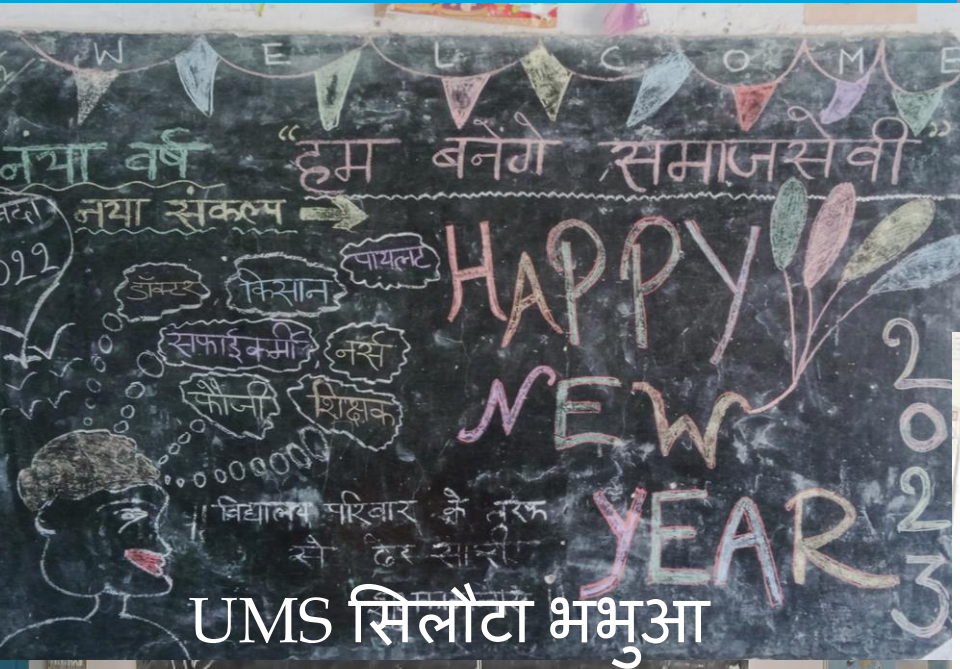 W E L C O M E
नया वर्ष “हम बनेंगे समाजसेवी”
नया संकल्प
पायलट
डॉक्टर किसान
सफाईकर्मी नर्स
फौजी शिक्षक
HAPPY
NEW
YEAR
2023
विद्यालय परिवार के तरफ
से ढेर सारी
UMS सिलौटा भभुआ